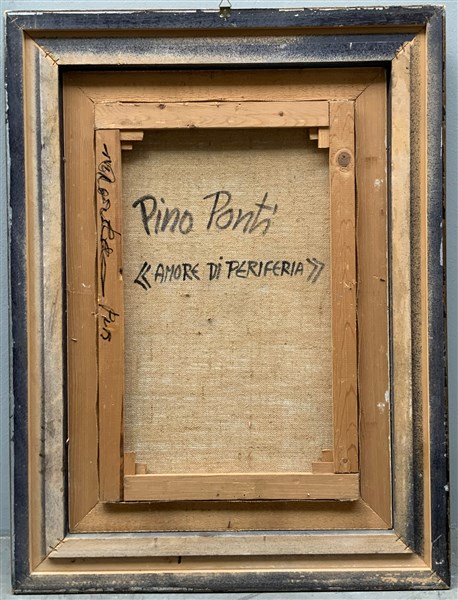 Pino Ponti
« AMORE DI PERIFERIA »